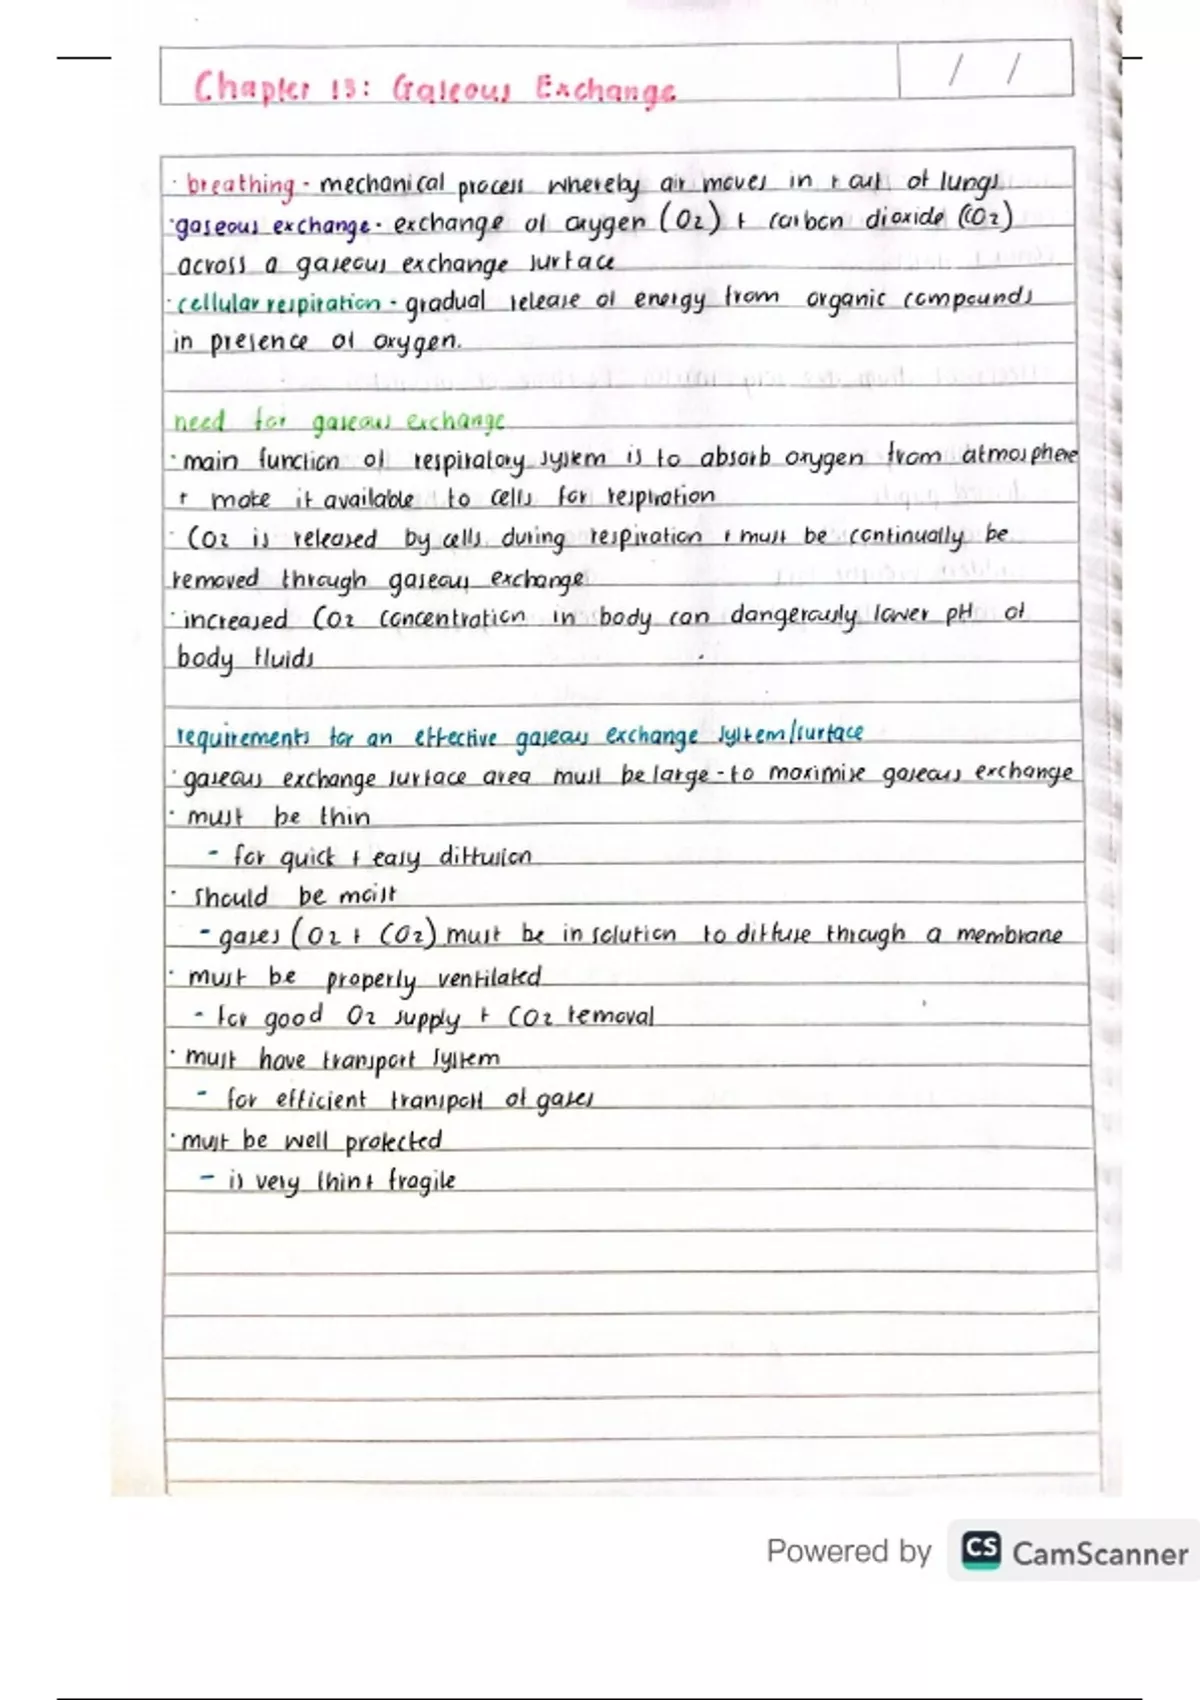 Chapter 13: Gaseous Exchange / /
· breathing - mechanical process whereby air moves in + out of lungs
· gaseous exchange - exchange of oxygen (O2) + carbon dioxide (CO2)
across a gaseous exchange surface
· cellular respiration - gradual release of energy from organic compounds
in presence of oxygen.
need for gaseous exchange
· main function of respiratory system is to absorb oxygen from atmosphere
+ make it available to cells for respiration
· CO2 is released by cells during respiration + must be continually be
removed through gaseous exchange
· increased CO2 concentration in body can dangerously lower pH of
body fluids
requirements for an effective gaseous exchange system/surface
· gaseous exchange surface area must be large - to maximise gaseous exchange
· must be thin
- for quick + easy diffusion
· should be moist
- gases (O2 + CO2) must be in solution to diffuse through a membrane
· must be properly ventilated
- for good O2 supply + CO2 removal
· must have transport system
- for efficient transport of gases
· must be well protected
- is very thin + fragile
Powered by CS CamScanner